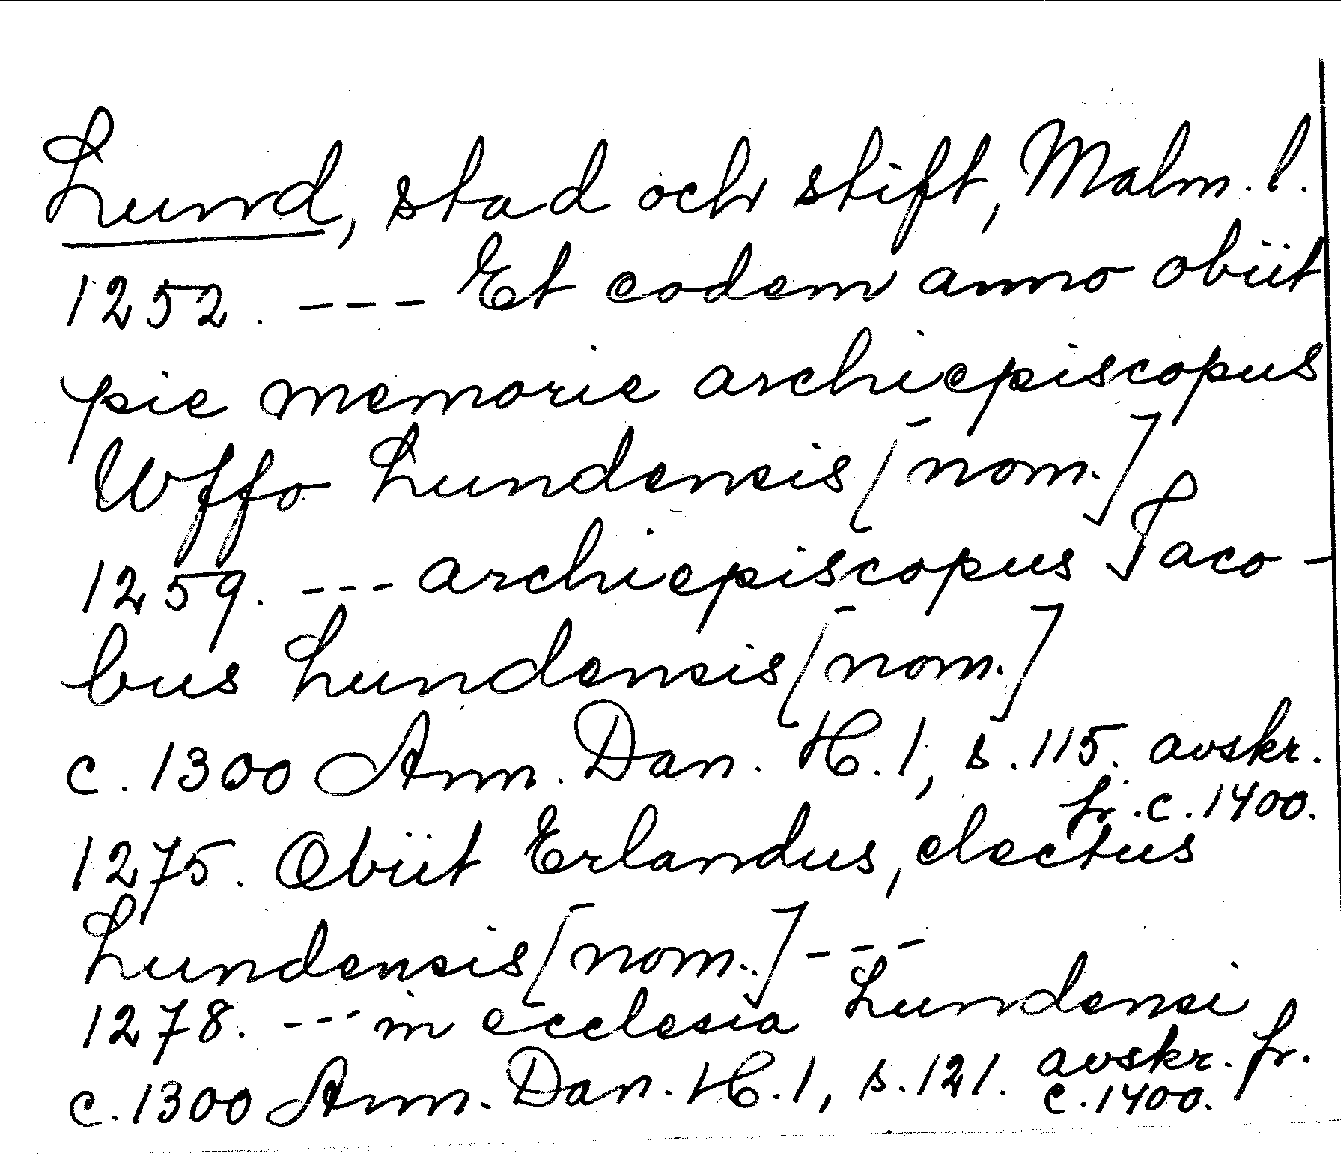 Lund, stad och stift, Malm. l.
1252. --- Et eodem anno obiit
pie memorie archiepiscopus
Uffo Lundensis [nom.]
1259. --- archiepiscopus Jaco-
bus Lundensis [nom.]
c. 1300 Ann. Dan. H. 1, s. 115. avskr.
fr. c. 1400.
1275. Obiit Erlandus, electus
Lundensis [nom.] ---
1278. --- in ecclesia Lundensi
c. 1300 Ann. Dan. H. 1, s. 121. avskr. fr.
c. 1400.